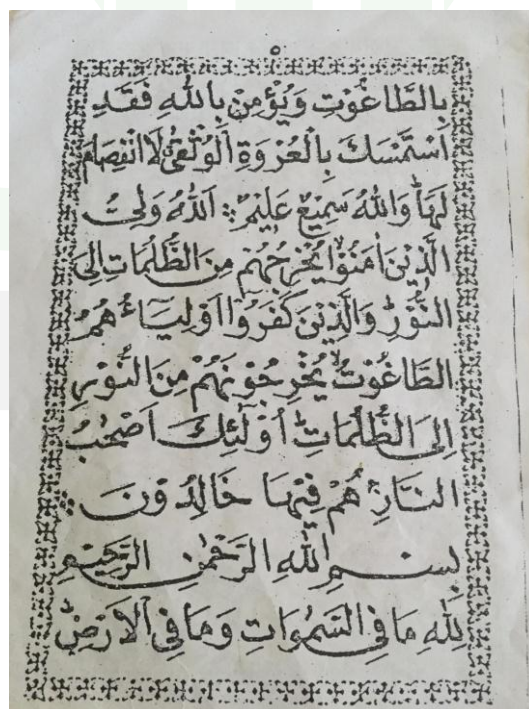 ٥
بِالطَّاغُوْتِ وَيُؤْمِنْ بِاللهِ فَقَدِ
اسْتَمْسَكَ بِالْعُرْوَةِ الْوُثْقٰى لَا انْفِصَامَ
لَهَا وَاللهُ سَمِيْعٌ عَلِيْمٌ ۞ اَللهُ وَلِيُّ
الَّذِيْنَ اٰمَنُوْا يُخْرِجُهُمْ مِنَ الظُّلُمَاتِ اِلَى
النُّوْرِ وَالَّذِيْنَ كَفَرُوْا اَوْلِيَاءُ هُمُ
الطَّاغُوْتُ يُخْرِجُوْنَهُمْ مِنَ النُّوْرِ
اِلَى الظُّلُمَاتِ اُولٰئِكَ اَصْحٰبُ
النَّارِ هُمْ فِيْهَا خَالِدُوْنَ ۞
بِسْمِ اللهِ الرَّحْمٰنِ الرَّحِيْمِ
لِلّٰهِ مَا فِي السَّمٰوَاتِ وَمَا فِي الْاَرْضِ